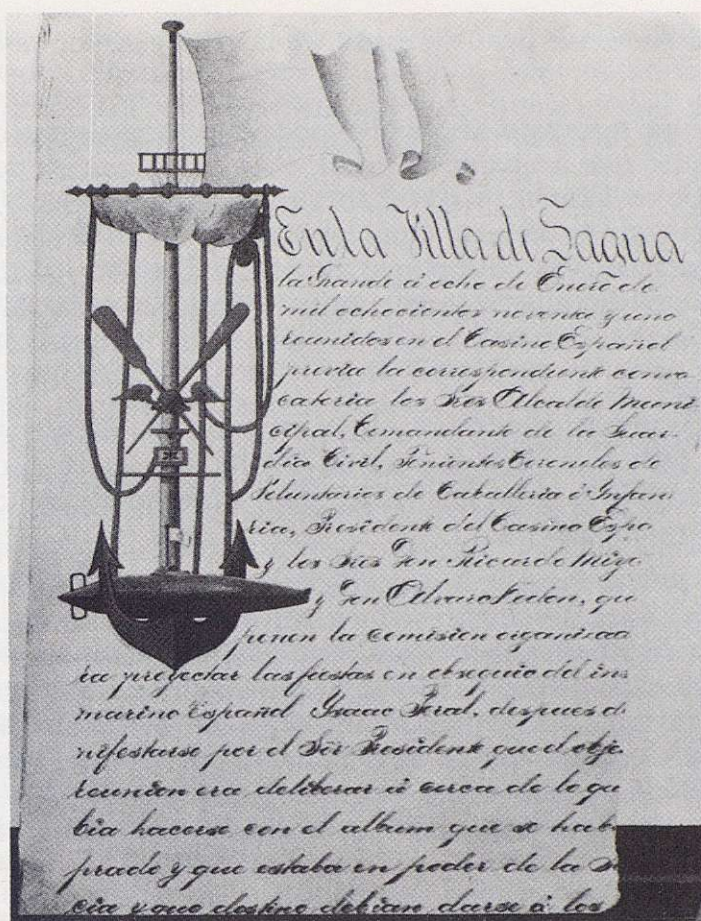 En la Villa de Sagua
la Grande á ocho de Enero de
mil ochocientos noventa y uno
reunidos en el Casino Español
previa la correspondiente convo
catoria los Sres Alcalde Muni
cipal, Comandante de la Guar-
dia Civil, Tenientes Coroneles de
Voluntarios de Caballeria é Infan
ria, Presidente del Casino Espa
y los Sres Don Ricardo
y Don Alvaro que
ponen la comision organizad
ra proyectar las fiestas en obsequio del ins
marino Español Ysaac Peral, despues d
nifestarse por el Sor Presidente que el obje
reunion era deliberar á cerca de lo qu
bia hacerse con el album que se hab
prado y que estaba en poder de la
cia y que destino debian darse á los